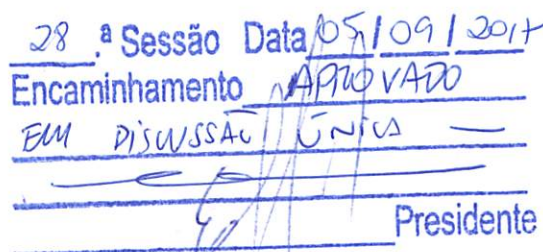 28 .ª Sessão Data 05/09/2017
Encaminhamento APROVADO
EM DISCUSSÃO ÚNICA
Presidente